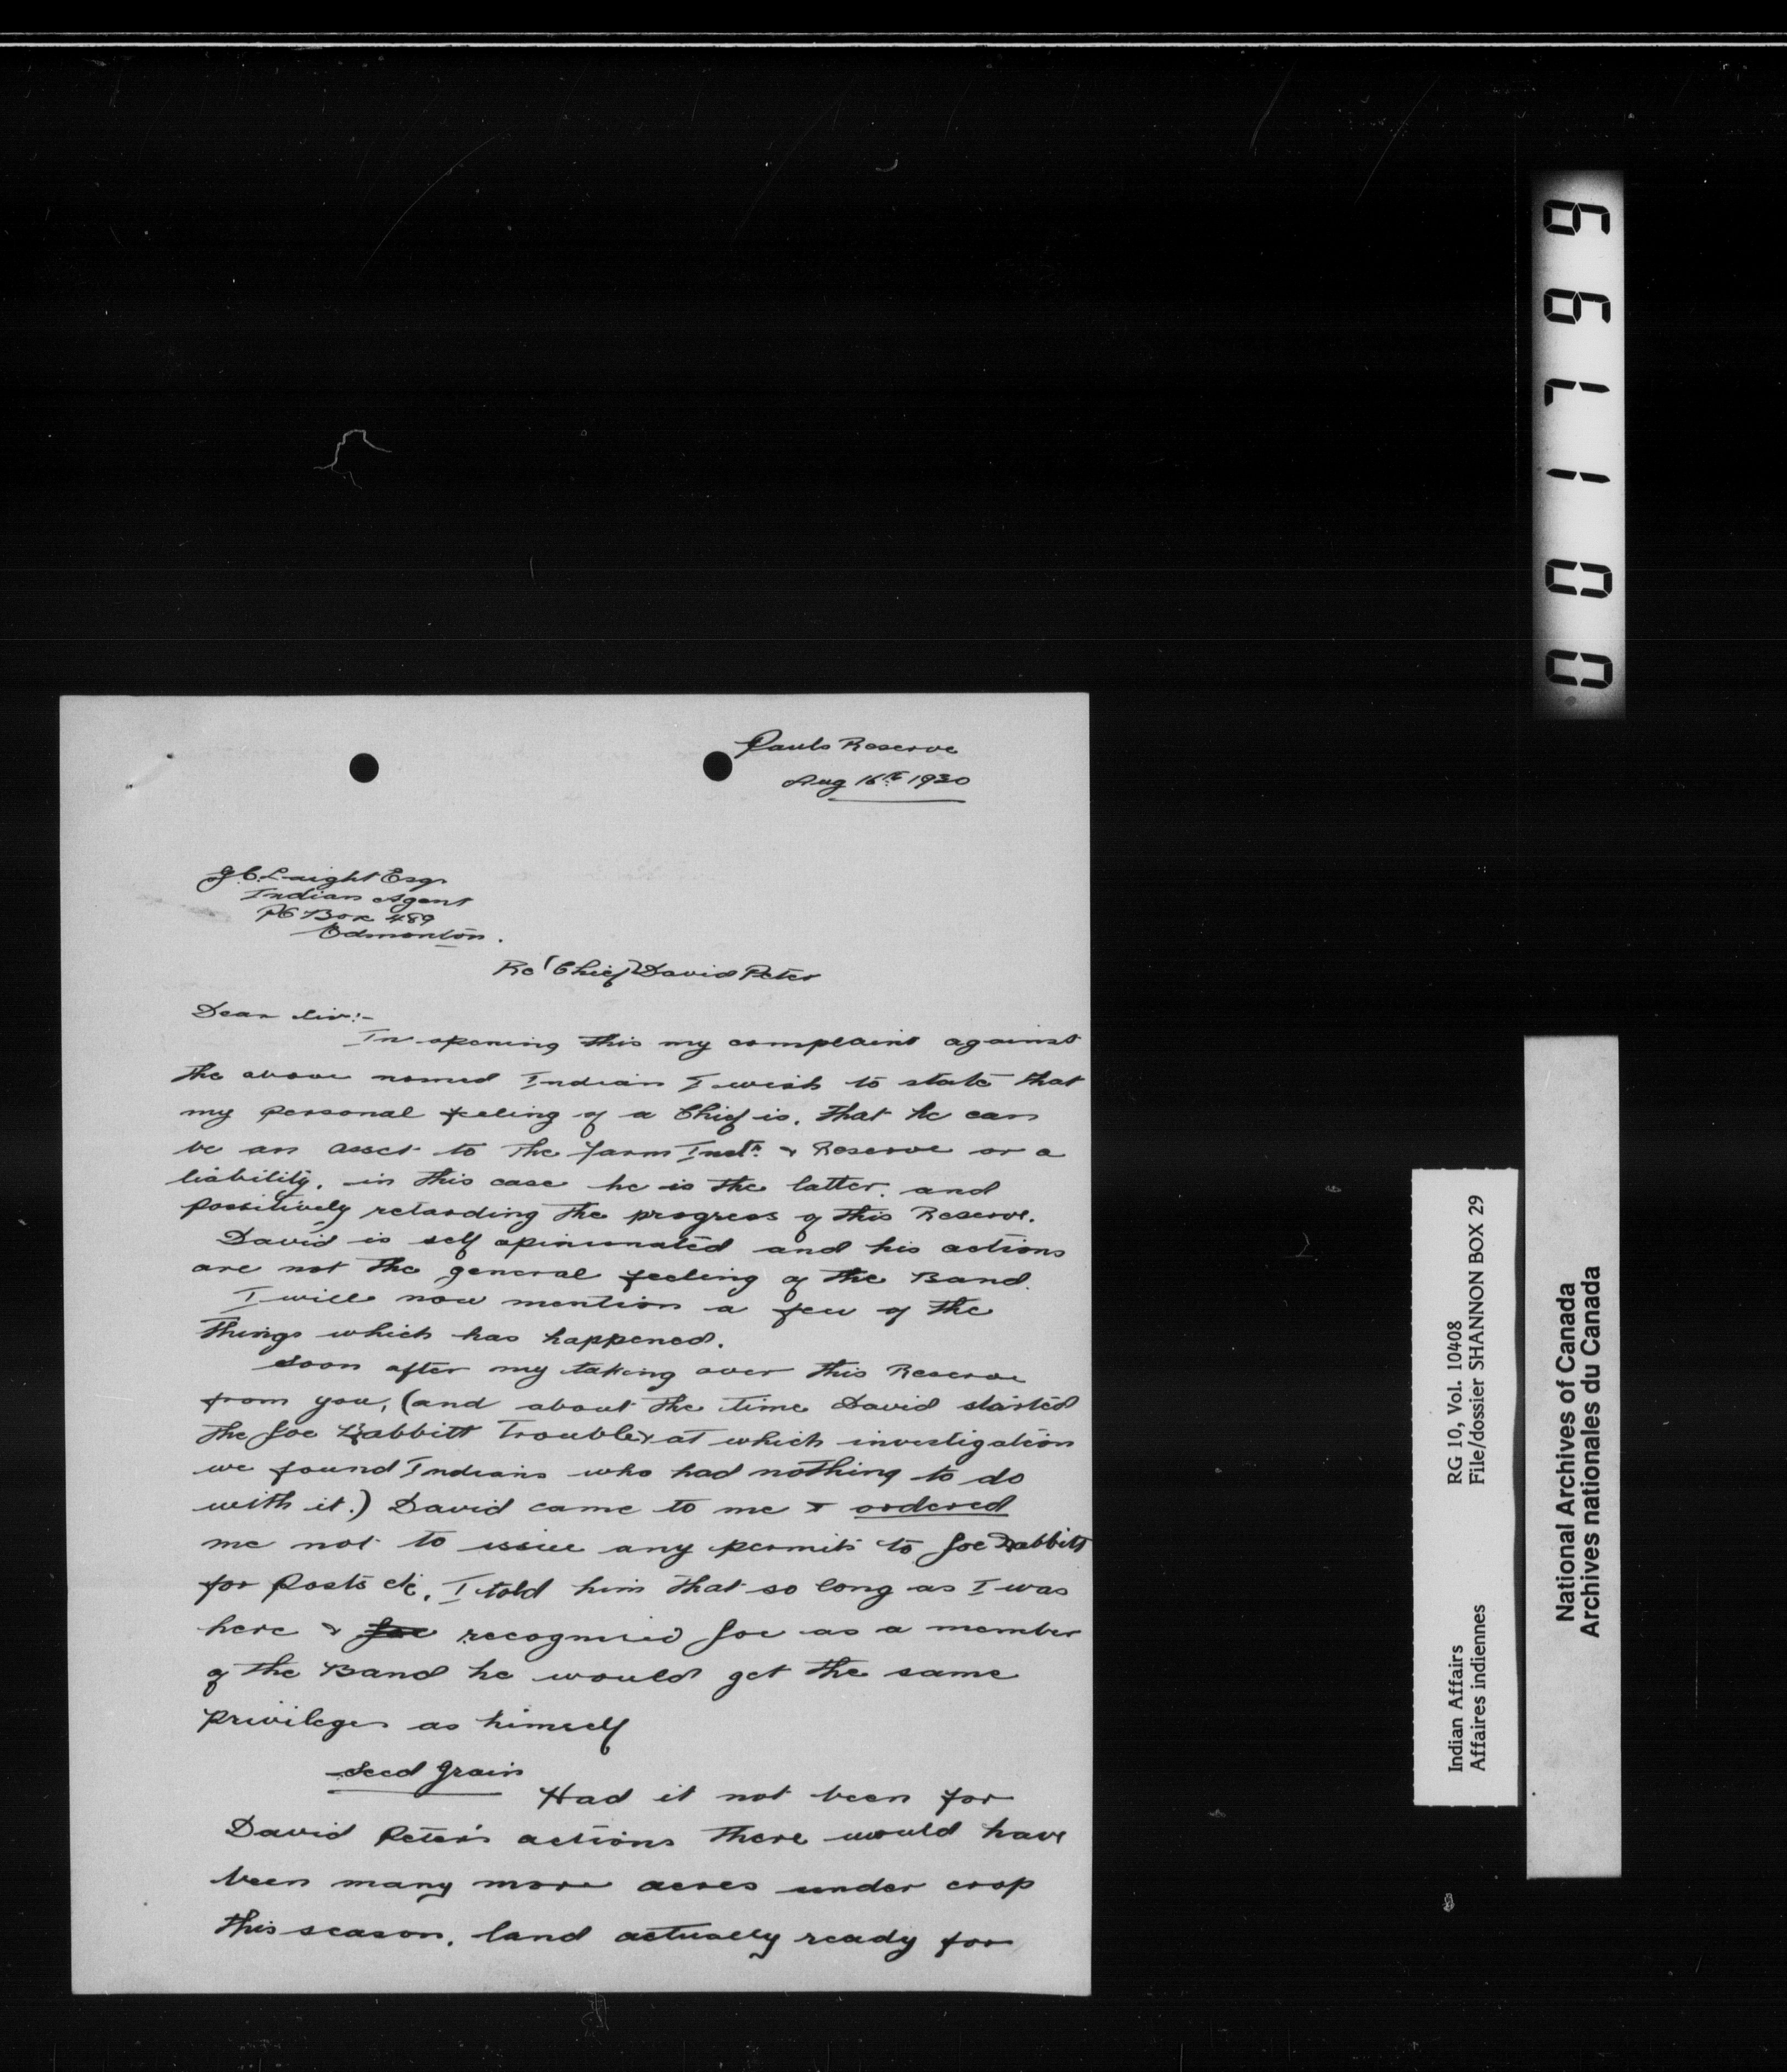 Pauls Reserve
Aug 16th 1930
J.C. Laight Esqr
Indian Agent
PO Box 489
Edmonton.
Re (Chief) David Peter
Dear Sir:-
In opening this my complaint against
the above named Indian I wish to state that
my personal feeling of a Chief is, that he can
be an asset to the Farm Instr. & Reserve or a
liability, in this case he is the latter, and
possitively retarding the progress of this Reserve.
David is self opinionated and his actions
are not the general feeling of the Band.
I will now mention a few of the
things which has happened.
Soon after my taking over this Reserve
from you, (and about the time David started
the Joe Rabbitt Trouble & at which investigation
we found Indians who had nothing to do
with it.) David came to me & ordered
me not to issue any permits to Joe Rabbitt
for Posts etc. I told him that so long as I was
here & Joe recognised Joe as a member
of the Band he would get the same
privileges as himself
Seed Grain
Had it not been for
David Peter's actions there would have
been many more acres under crop
this season, land actually ready for
001799
Indian Affairs RG 10, Vol. 10408
Affaires indiennes File/dossier SHANNON BOX 29
National Archives of Canada
Archives nationales du Canada